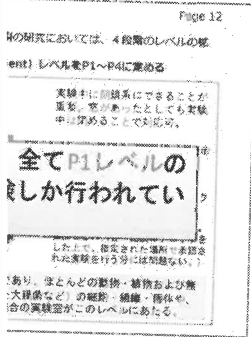 Page 12
の研究においては、4段階のレベルの
ent) レベルをP1～P4に定める
実験中に閉鎖系にできることが
重要。窓があったとしても実験
中は閉めることで対応可。
全てP1レベルの
しか行われてい
した上で、指定された場所で承認さ
れた実験を行う分には問題ない。)
であり、ほとんどの動物・植物および無
大腸菌など）の細胞・組織・個体や、
合の実験室がこのレベルにあたる。